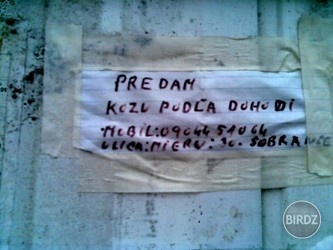 PREDAM
KOZU PODĽA DOHODI
MOBIL:0904451064
ULICA:MIERU: 30. SOBRANCE
BIRDZ